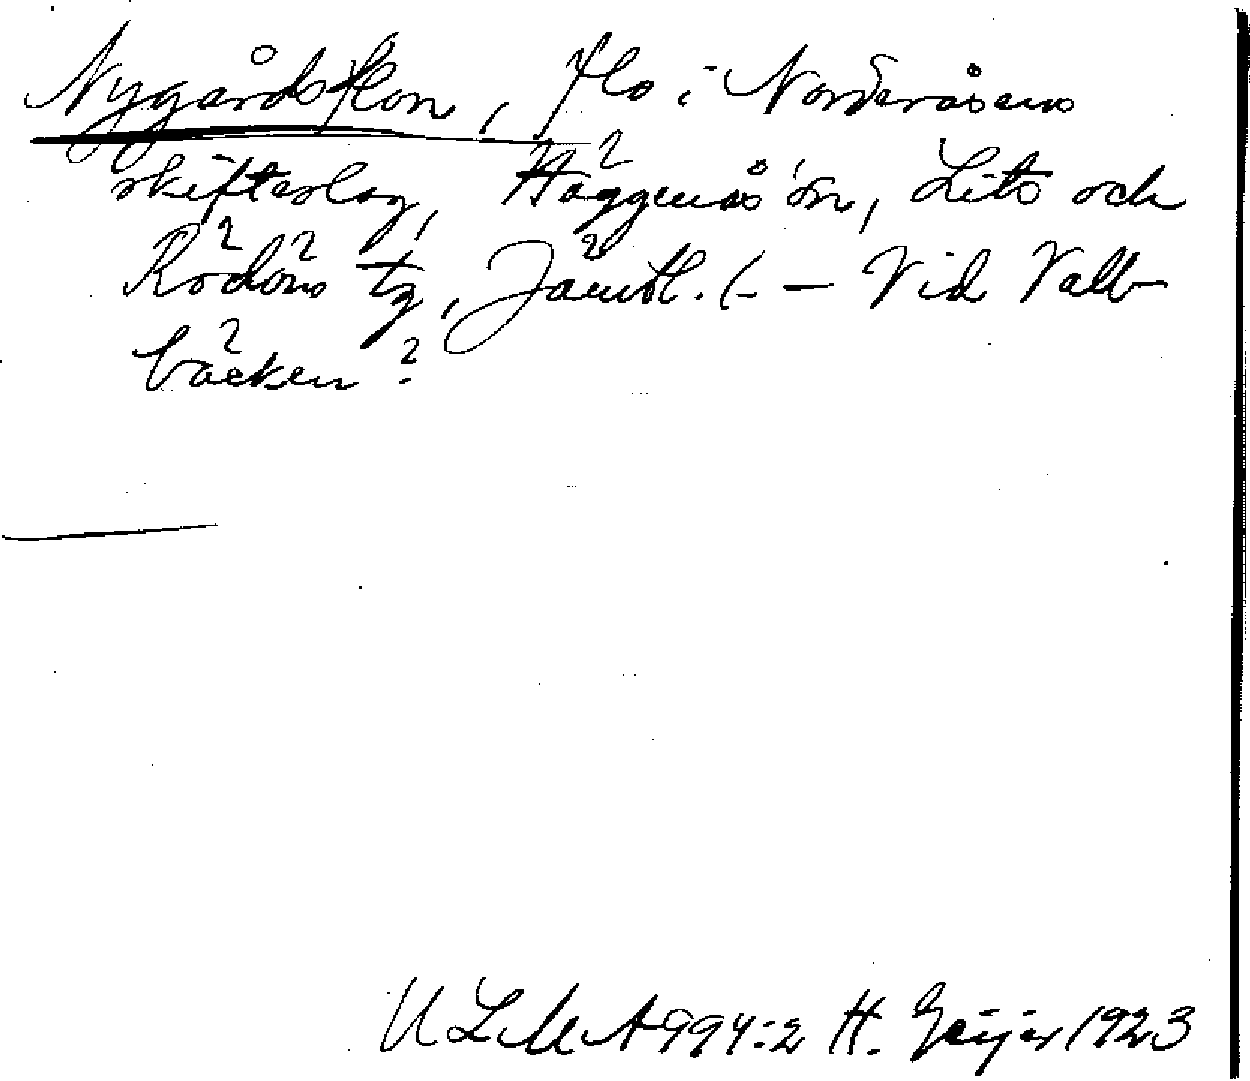 Nygårdsflon, Flo i Norderåsens
skifteslag, Häggenås sn, Lits och
Rödöns tg, Jämtl. (- — Vid Vall-
bäcken ?
ULMA 994:2 H. Geijer 1923